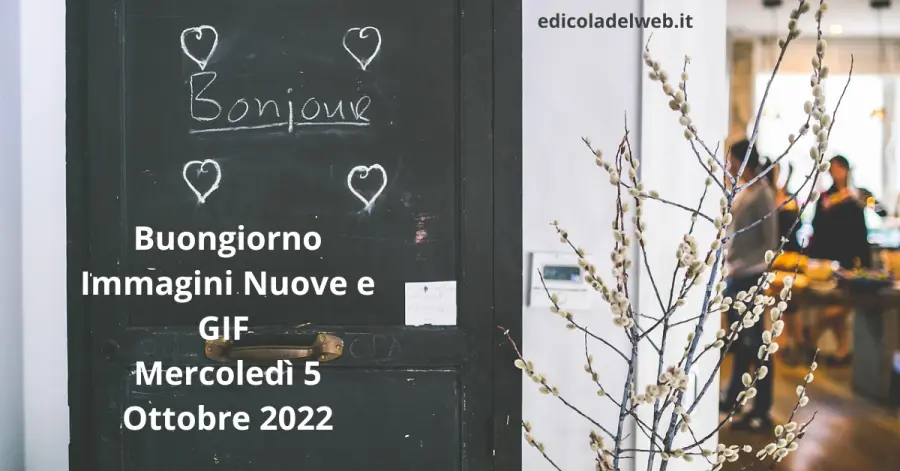 edicoladelweb.it
Bonjour
Buongiorno
Immagini Nuove e
GIF
Mercoledì 5
Ottobre 2022